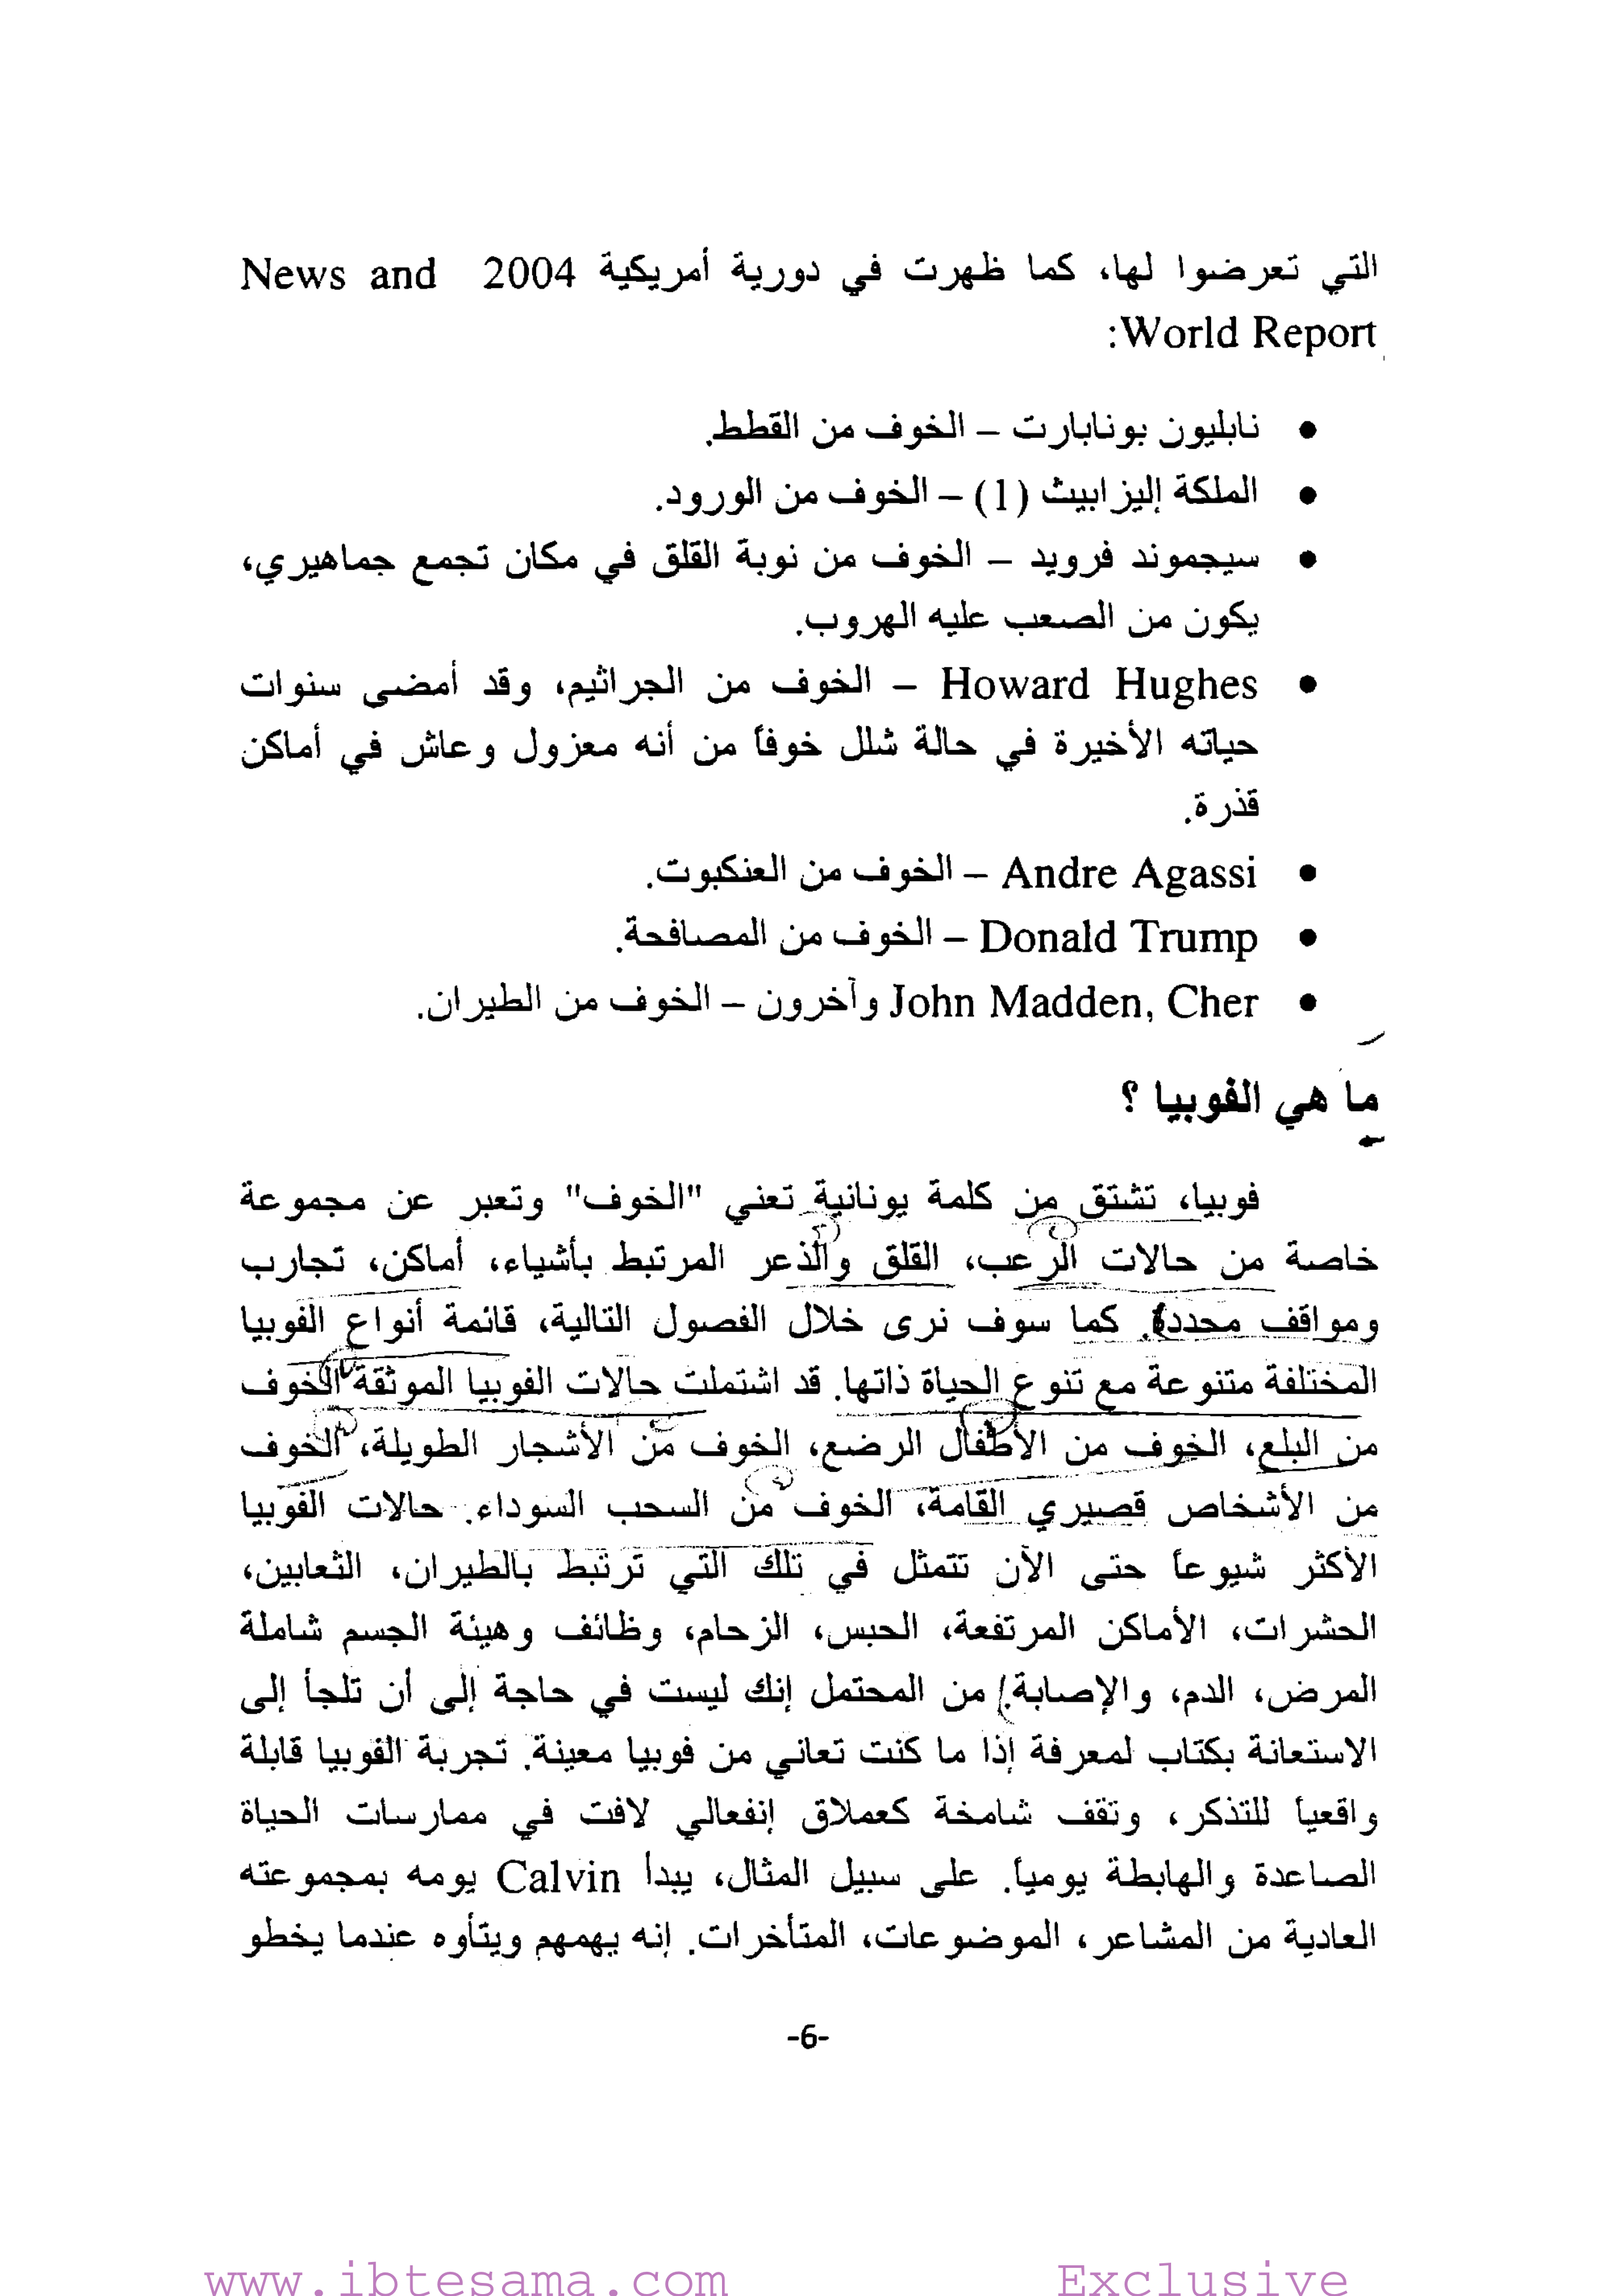 التي تعرضوا لها، كما ظهرت في دورية أمريكية 2004 News and
World Report:
• نابليون بونابارت – الخوف من القطط.
• الملكة إليزابيث (1) – الخوف من الورود.
• سيجموند فرويد – الخوف من نوبة القلق في مكان تجمع جماهيري،
يكون من الصعب عليه الهروب.
• Howard Hughes – الخوف من الجراثيم، وقد أمضى سنوات
حياته الأخيرة في حالة شلل خوفاً من أنه معزول وعاش في أماكن
قذرة.
• Andre Agassi – الخوف من العنكبوت.
• Donald Trump – الخوف من المصافحة.
• John Madden, Cher وآخرون – الخوف من الطيران.
ما هي الفوبيا ؟
فوبيا، تشتق من كلمة يونانية تعني "الخوف" وتعبر عن مجموعة
خاصة من حالات الرعب، القلق والذعر المرتبط بأشياء، أماكن، تجارب
ومواقف محددة. كما سوف نرى خلال الفصول التالية، قائمة أنواع الفوبيا
المختلفة متنوعة مع تنوع الحياة ذاتها. قد اشتملت حالات الفوبيا الموثقة الخوف
من البلع، الخوف من الأطفال الرضع، الخوف من الأشجار الطويلة، الخوف
من الأشخاص قصيري القامة، الخوف من السحب السوداء. حالات الفوبيا
الأكثر شيوعاً حتى الآن تتمثل في تلك التي ترتبط بالطيران، الثعابين،
الحشرات، الأماكن المرتفعة، الحبس، الزحام، وظائف وهيئة الجسم شاملة
المرض، الدم، والإصابة. من المحتمل إنك ليست في حاجة إلى أن تلجأ إلى
الاستعانة بكتاب لمعرفة إذا ما كنت تعاني من فوبيا معينة. تجربة الفوبيا قابلة
واقعياً للتذكر، وتقف شامخة كعملاق إنفعالي لافت في ممارسات الحياة
الصاعدة والهابطة يومياً. على سبيل المثال، يبدأ Calvin يومه بمجموعته
العادية من المشاعر، الموضوعات، المتأخرات. إنه يهمهم ويتأوه عندما يخطو
-6-
www.ibtesama.com Exclusive